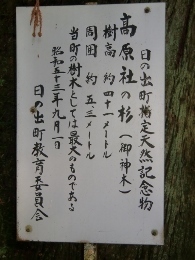 日の出町指定天然記念物
高原社の杉（御神木）
樹高 約 四十一メートル
周囲 約 五、三メートル
当町の樹木としては最大のものである
昭和五十三年九月一日
日の出町教育委員会